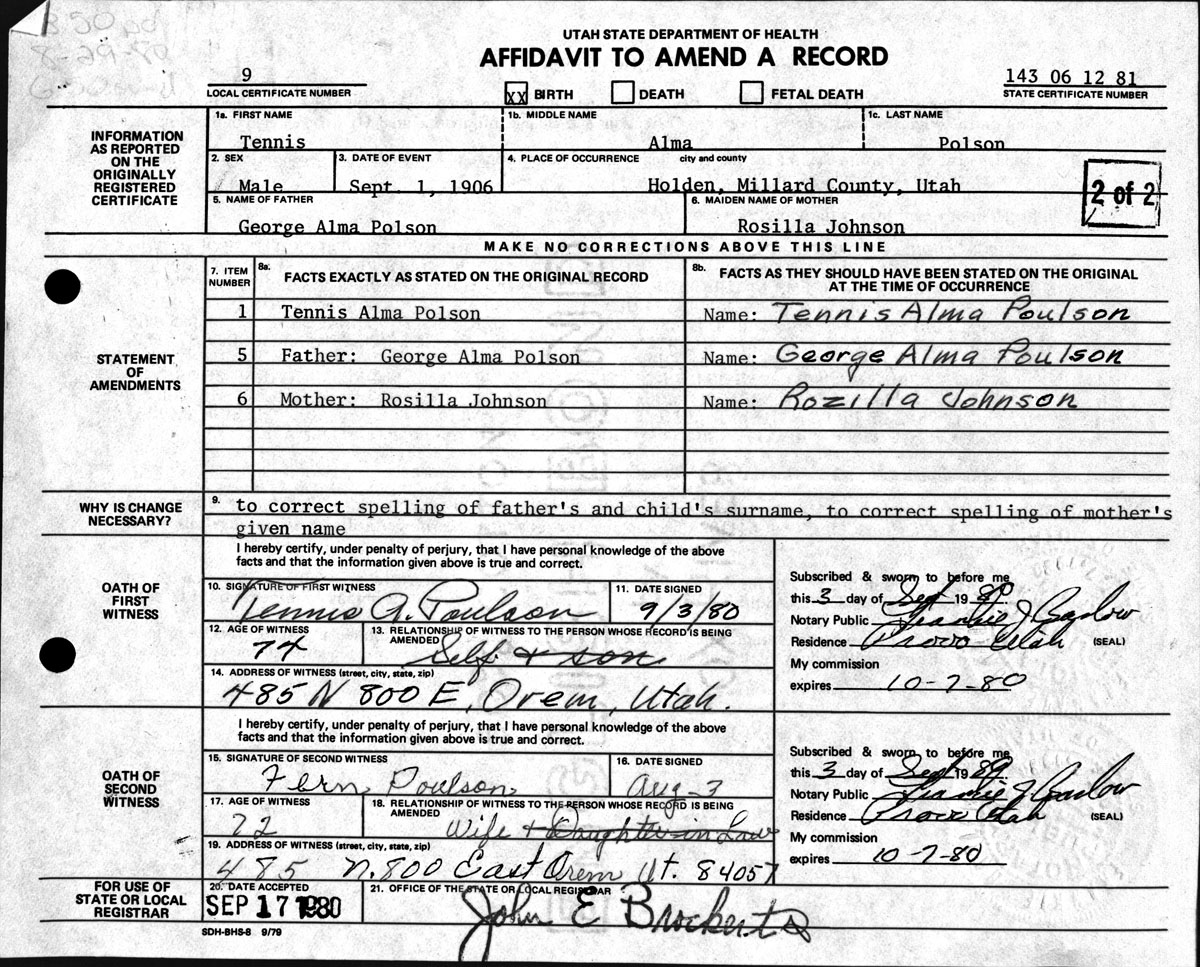 UTAH STATE DEPARTMENT OF HEALTH
AFFIDAVIT TO AMEND A RECORD
9
LOCAL CERTIFICATE NUMBER
XX BIRTH DEATH FETAL DEATH
143 06 12 81
STATE CERTIFICATE NUMBER
INFORMATION AS REPORTED ON THE ORIGINALLY REGISTERED CERTIFICATE
1a. FIRST NAME 1b. MIDDLE NAME 1c. LAST NAME
Tennis Alma Polson
2. SEX 3. DATE OF EVENT 4. PLACE OF OCCURRENCE city and county
Male Sept. 1, 1906 Holden, Millard County, Utah
2 of 2
5. NAME OF FATHER 6. MAIDEN NAME OF MOTHER
George Alma Polson Rosilla Johnson
MAKE NO CORRECTIONS ABOVE THIS LINE
STATEMENT OF AMENDMENTS
7. ITEM NUMBER 8a. FACTS EXACTLY AS STATED ON THE ORIGINAL RECORD 8b. FACTS AS THEY SHOULD HAVE BEEN STATED ON THE ORIGINAL AT THE TIME OF OCCURRENCE
1 Tennis Alma Polson Name: Tennis Alma Poulson
5 Father: George Alma Polson Name: George Alma Poulson
6 Mother: Rosilla Johnson Name: Rozilla Johnson
WHY IS CHANGE NECESSARY?
9. to correct spelling of father's and child's surname, to correct spelling of mother's
given name
OATH OF FIRST WITNESS
I hereby certify, under penalty of perjury, that I have personal knowledge of the above
facts and that the information given above is true and correct.
10. SIGNATURE OF FIRST WITNESS 11. DATE SIGNED
Tennis A. Poulson 9/3/80
12. AGE OF WITNESS 13. RELATIONSHIP OF WITNESS TO THE PERSON WHOSE RECORD IS BEING AMENDED
74 Self & son
14. ADDRESS OF WITNESS (street, city, state, zip)
485 N 800 E, Orem, Utah.
Subscribed & sworn to before me
this 3 day of Sept 19 80
Notary Public
Residence Provo Utah (SEAL)
My commission
expires 10-7-80
OATH OF SECOND WITNESS
I hereby certify, under penalty of perjury, that I have personal knowledge of the above
facts and that the information given above is true and correct.
15. SIGNATURE OF SECOND WITNESS 16. DATE SIGNED
Fern Poulson Aug-3
17. AGE OF WITNESS 18. RELATIONSHIP OF WITNESS TO THE PERSON WHOSE RECORD IS BEING AMENDED
72 Wife & Daughter-in Law
19. ADDRESS OF WITNESS (street, city, state, zip)
485 N. 800 East Orem Ut. 84057
Subscribed & sworn to before me
this 3 day of Sept 19 80
Notary Public
Residence Provo Utah (SEAL)
My commission
expires 10-7-80
FOR USE OF STATE OR LOCAL REGISTRAR
20. DATE ACCEPTED 21. OFFICE OF THE STATE OR LOCAL REGISTRAR
SEP 17 1980 John E Brockerts
SDH-BHS-8 9/79